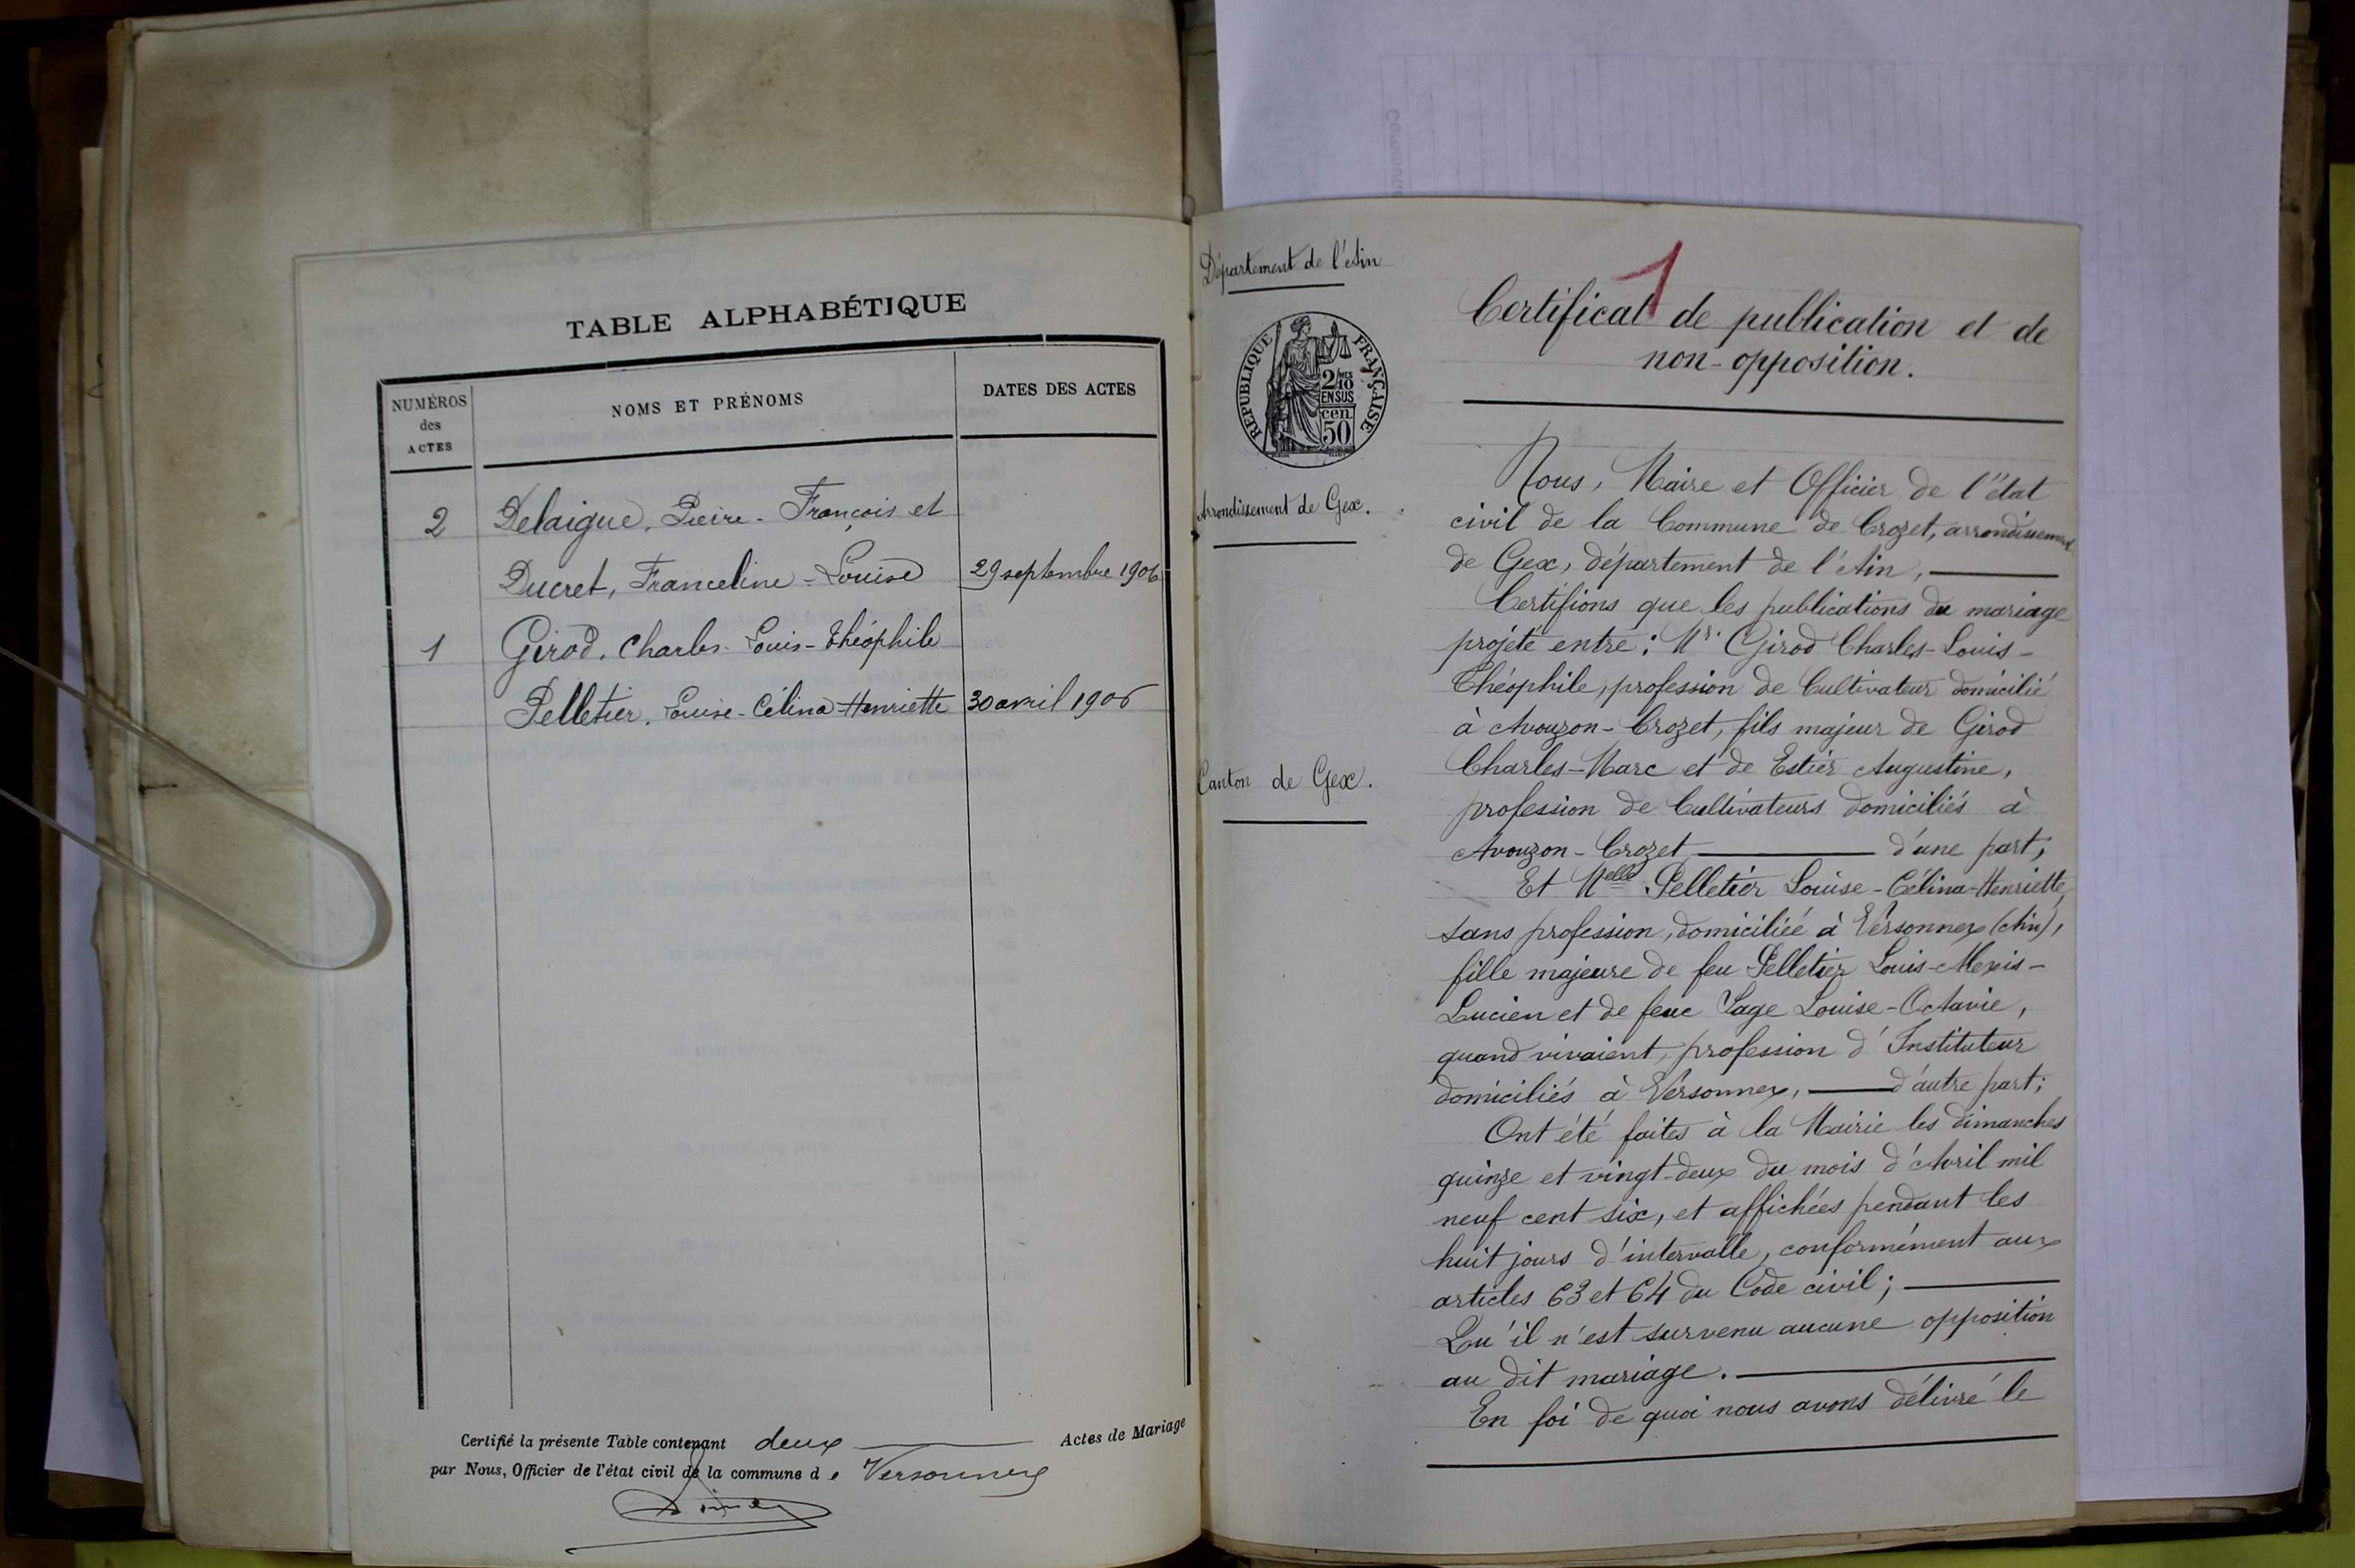 TABLE ALPHABÉTIQUE
NUMÉROS
des
ACTES
NOMS ET PRÉNOMS
DATES DES ACTES
2 Delaigue, Pierre-François et
Ducret, Franceline-Louise 29 septembre 1906
1 Girod, Charles-Louis-Théophile
Pelletier, Louise-Célina-Henriette 30 avril 1906
Certifié la présente Table contenant deux Actes de Mariage
par Nous, Officier de l'état civil de la commune de Versonnex
Département de l'Ain
RÉPUBLIQUE FRANÇAISE
2/10 MES
EN SUS
cen
50
Arrondissement de Gex.
Canton de Gex.
1
Certificat de publication et de
non-opposition.
Nous, Maire et Officier de l'état
civil de la Commune de Crozet, arrondissement
de Gex, département de l'Ain,
Certifions que les publications du mariage
projeté entre : Mr. Girod Charles-Louis-
Théophile, profession de Cultivateur domicilié
à Avouzon-Crozet, fils majeur de Girod
Charles-Marc et de Estier Augustine,
profession de Cultivateurs domiciliés à
Avouzon-Crozet d'une part,
Et Melle Pelletier Louise-Célina-Henriette,
sans profession, domiciliée à Versonnex (Ain),
fille majeure de feu Pelletier Louis-Alexis-
Lucien et de feue Sage Louise-Octavie,
quand vivaient, profession d'Instituteur
domiciliés à Versonnex, d'autre part;
Ont été faites à la Mairie les dimanches
quinze et vingt-deux du mois d'Avril mil
neuf cent six, et affichées pendant les
huit jours d'intervalle, conformément aux
articles 63 et 64 du Code civil;
Qu'il n'est survenu aucune opposition
au dit mariage.
En foi de quoi nous avons délivré le